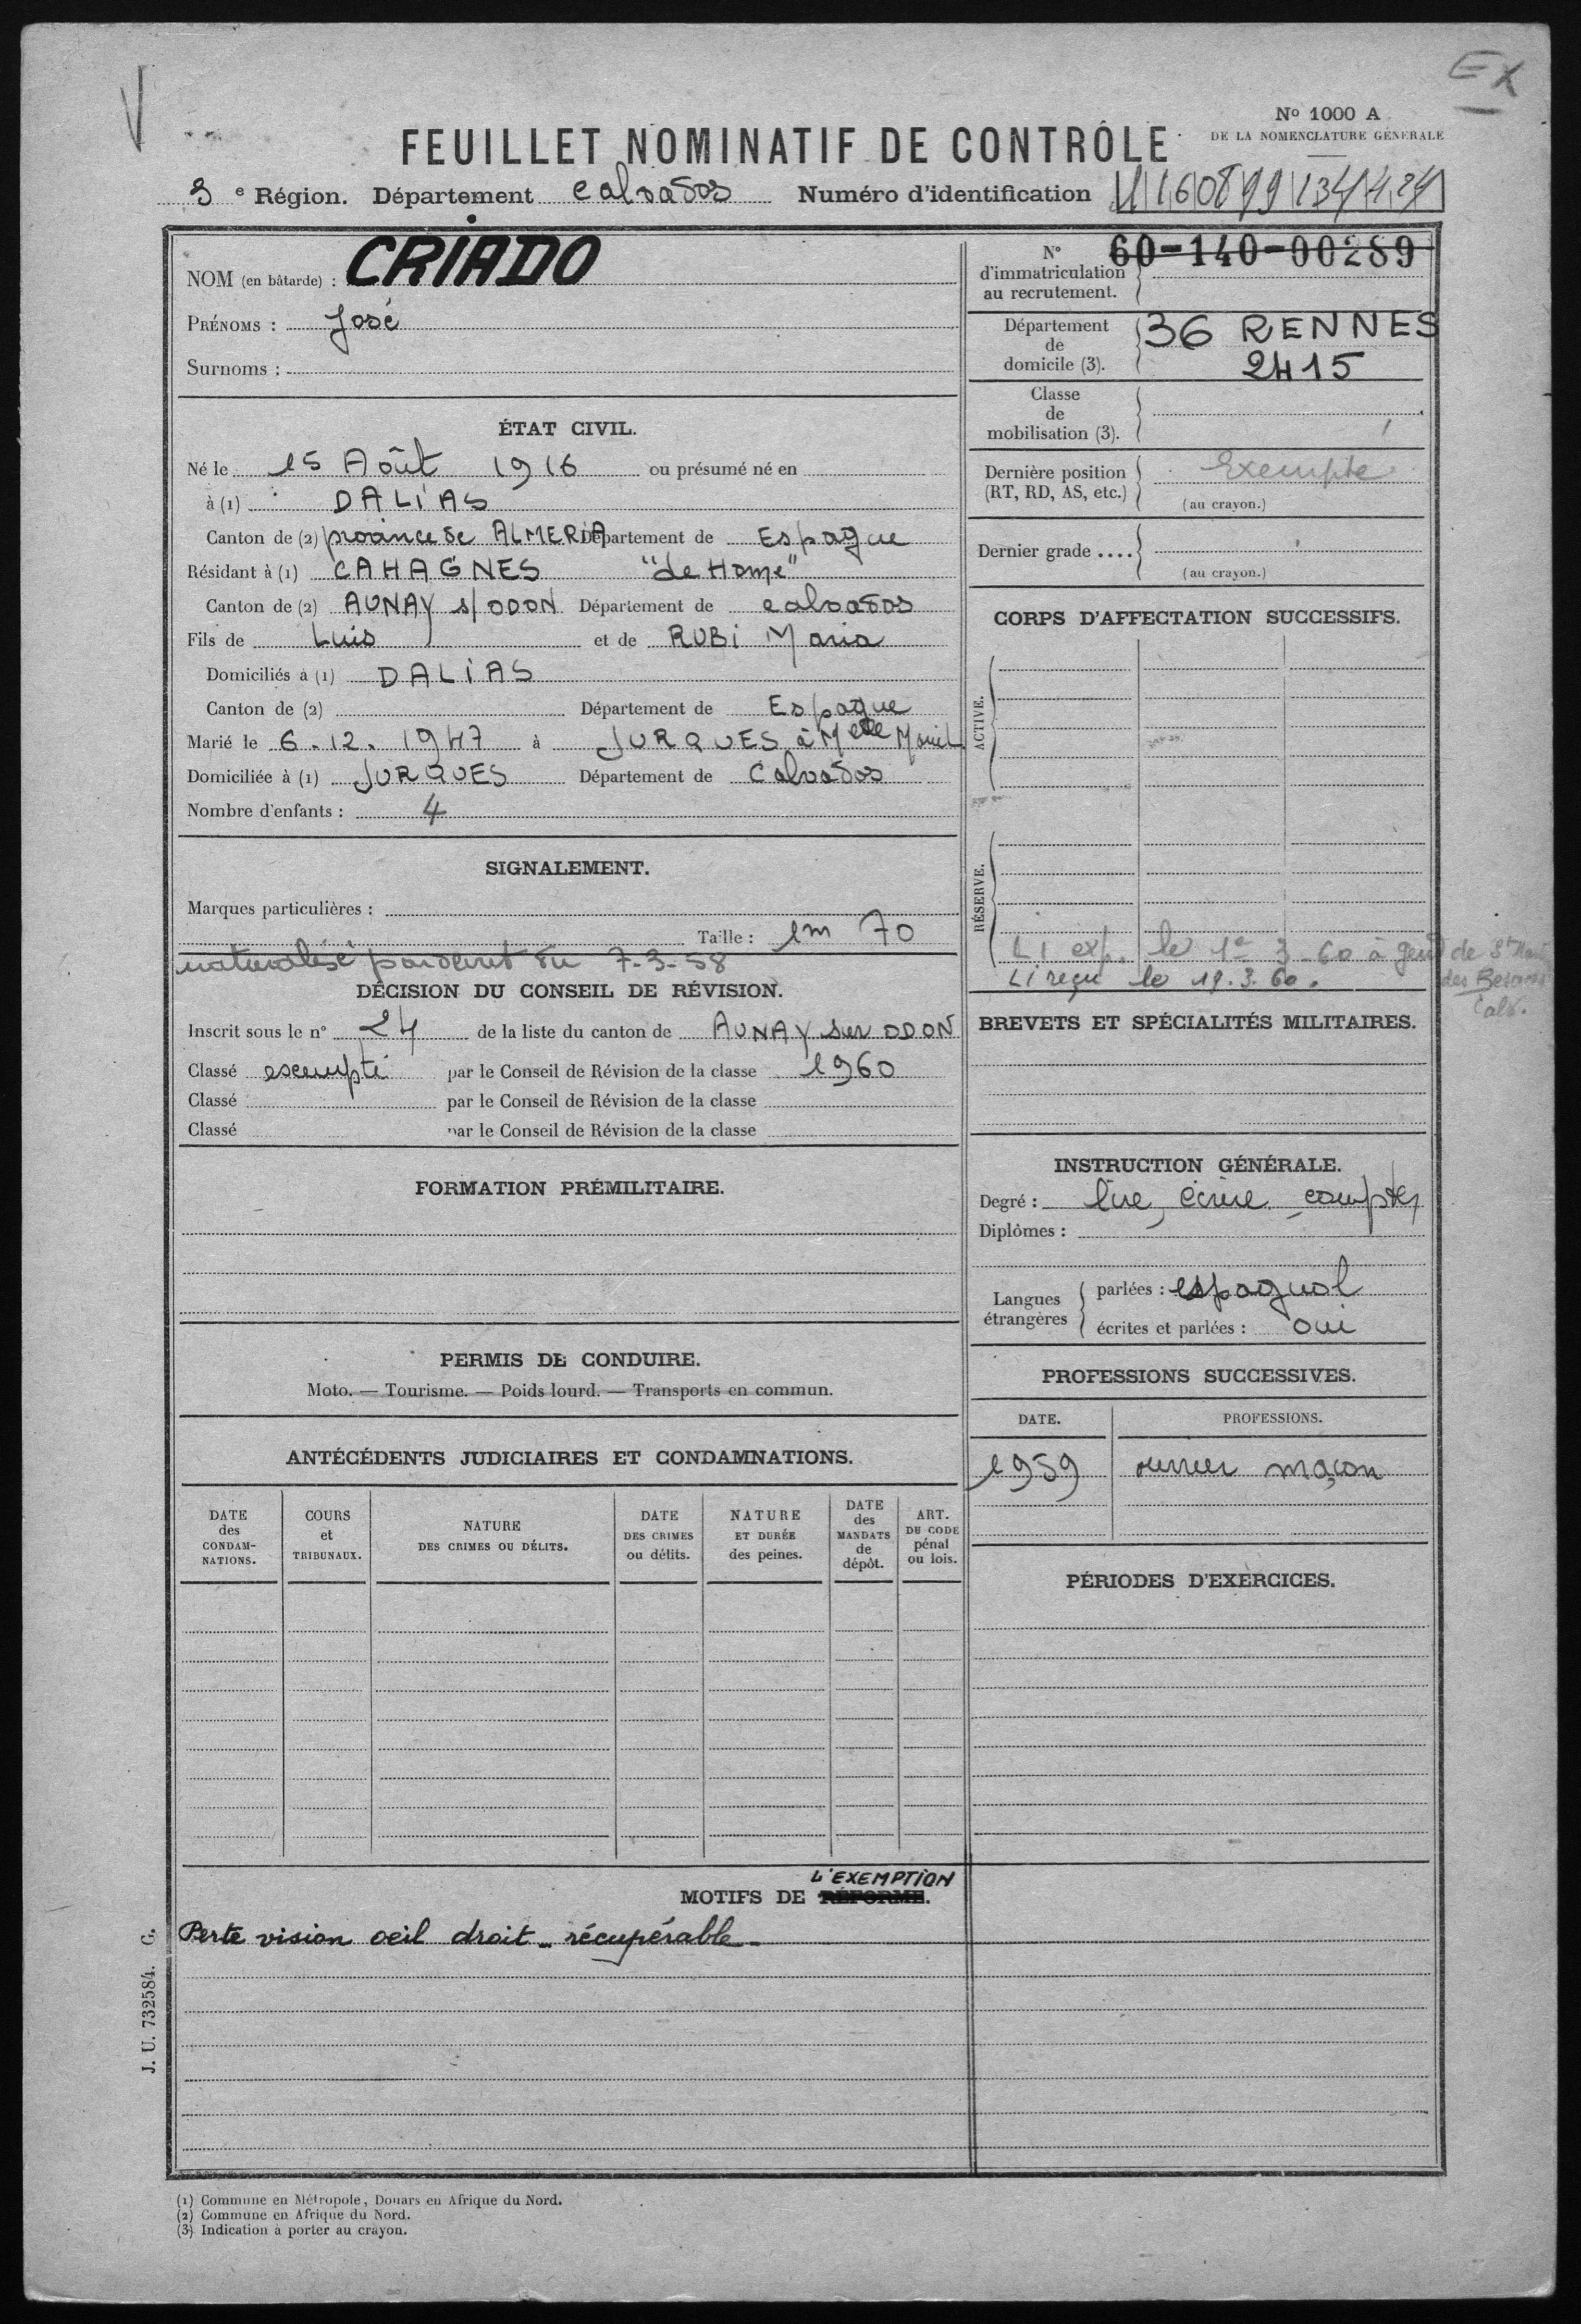 EX
V
N° 1000 A
DE LA NOMENCLATURE GÉNÉRALE
FEUILLET NOMINATIF DE CONTRÔLE
3 e Région. Département Calvados Numéro d'identification
NOM (en bâtarde) : CRIADO
PRÉNOMS : José
Surnoms :
ÉTAT CIVIL.
Né le 15 Août 1916 ou présumé né en
à (1) DALIAS
Canton de (2) province de ALMERIA Département de Espagne
Résidant à (1) CAHAGNES "de Home"
Canton de (2) AUNAY s/ ODON Département de calvados
Fils de Luis et de RUBI Maria
Domiciliés à (1) DALIAS
Canton de (2) Département de Espagne
Marié le 6.12.1947 à JURQUES à Melle
Domiciliée à (1) JURQUES Département de Calvados
Nombre d'enfants : 4
SIGNALEMENT.
Marques particulières :
Taille : 1m 70
naturalisé par décret du 7-3-58
DÉCISION DU CONSEIL DE RÉVISION.
Inscrit sous le n° 24 de la liste du canton de AUNAY sur ODON
Classé exempté par le Conseil de Révision de la classe 1960
Classé par le Conseil de Révision de la classe
Classé par le Conseil de Révision de la classe
FORMATION PRÉMILITAIRE.
PERMIS DE CONDUIRE.
Moto. — Tourisme. — Poids lourd. — Transports en commun.
ANTÉCÉDENTS JUDICIAIRES ET CONDAMNATIONS.
DATE des CONDAM-NATIONS.
COURS et TRIBUNAUX.
NATURE DES CRIMES OU DÉLITS.
DATE DES CRIMES ou délits.
NATURE ET DURÉE des peines.
DATE des MANDATS de dépôt.
ART. DU CODE pénal ou lois.
N° d'immatriculation au recrutement. 60-140-00289
Département de domicile (3). 36 RENNES
2415
Classe de mobilisation (3).
Dernière position (RT, RD, AS, etc.) Exempté
(au crayon.)
Dernier grade ....
(au crayon.)
CORPS D'AFFECTATION SUCCESSIFS.
ACTIVE.
RÉSERVE.
LI exp. le 1er 3-60 à gend de St
LI reçu le 19.3.60.
Calv.
BREVETS ET SPÉCIALITÉS MILITAIRES.
INSTRUCTION GÉNÉRALE.
Degré : lire, écrire, compter
Diplômes :
Langues étrangères
parlées : espagnol
écrites et parlées : oui
PROFESSIONS SUCCESSIVES.
DATE. PROFESSIONS.
1959 ouvrier maçon
PÉRIODES D'EXERCICES.
L'EXEMPTION
MOTIFS DE RÉFORME.
Perte vision oeil droit - récupérable -
J. U. 732584. G.
(1) Commune en Métropole, Douars en Afrique du Nord.
(2) Commune en Afrique du Nord.
(3) Indication à porter au crayon.